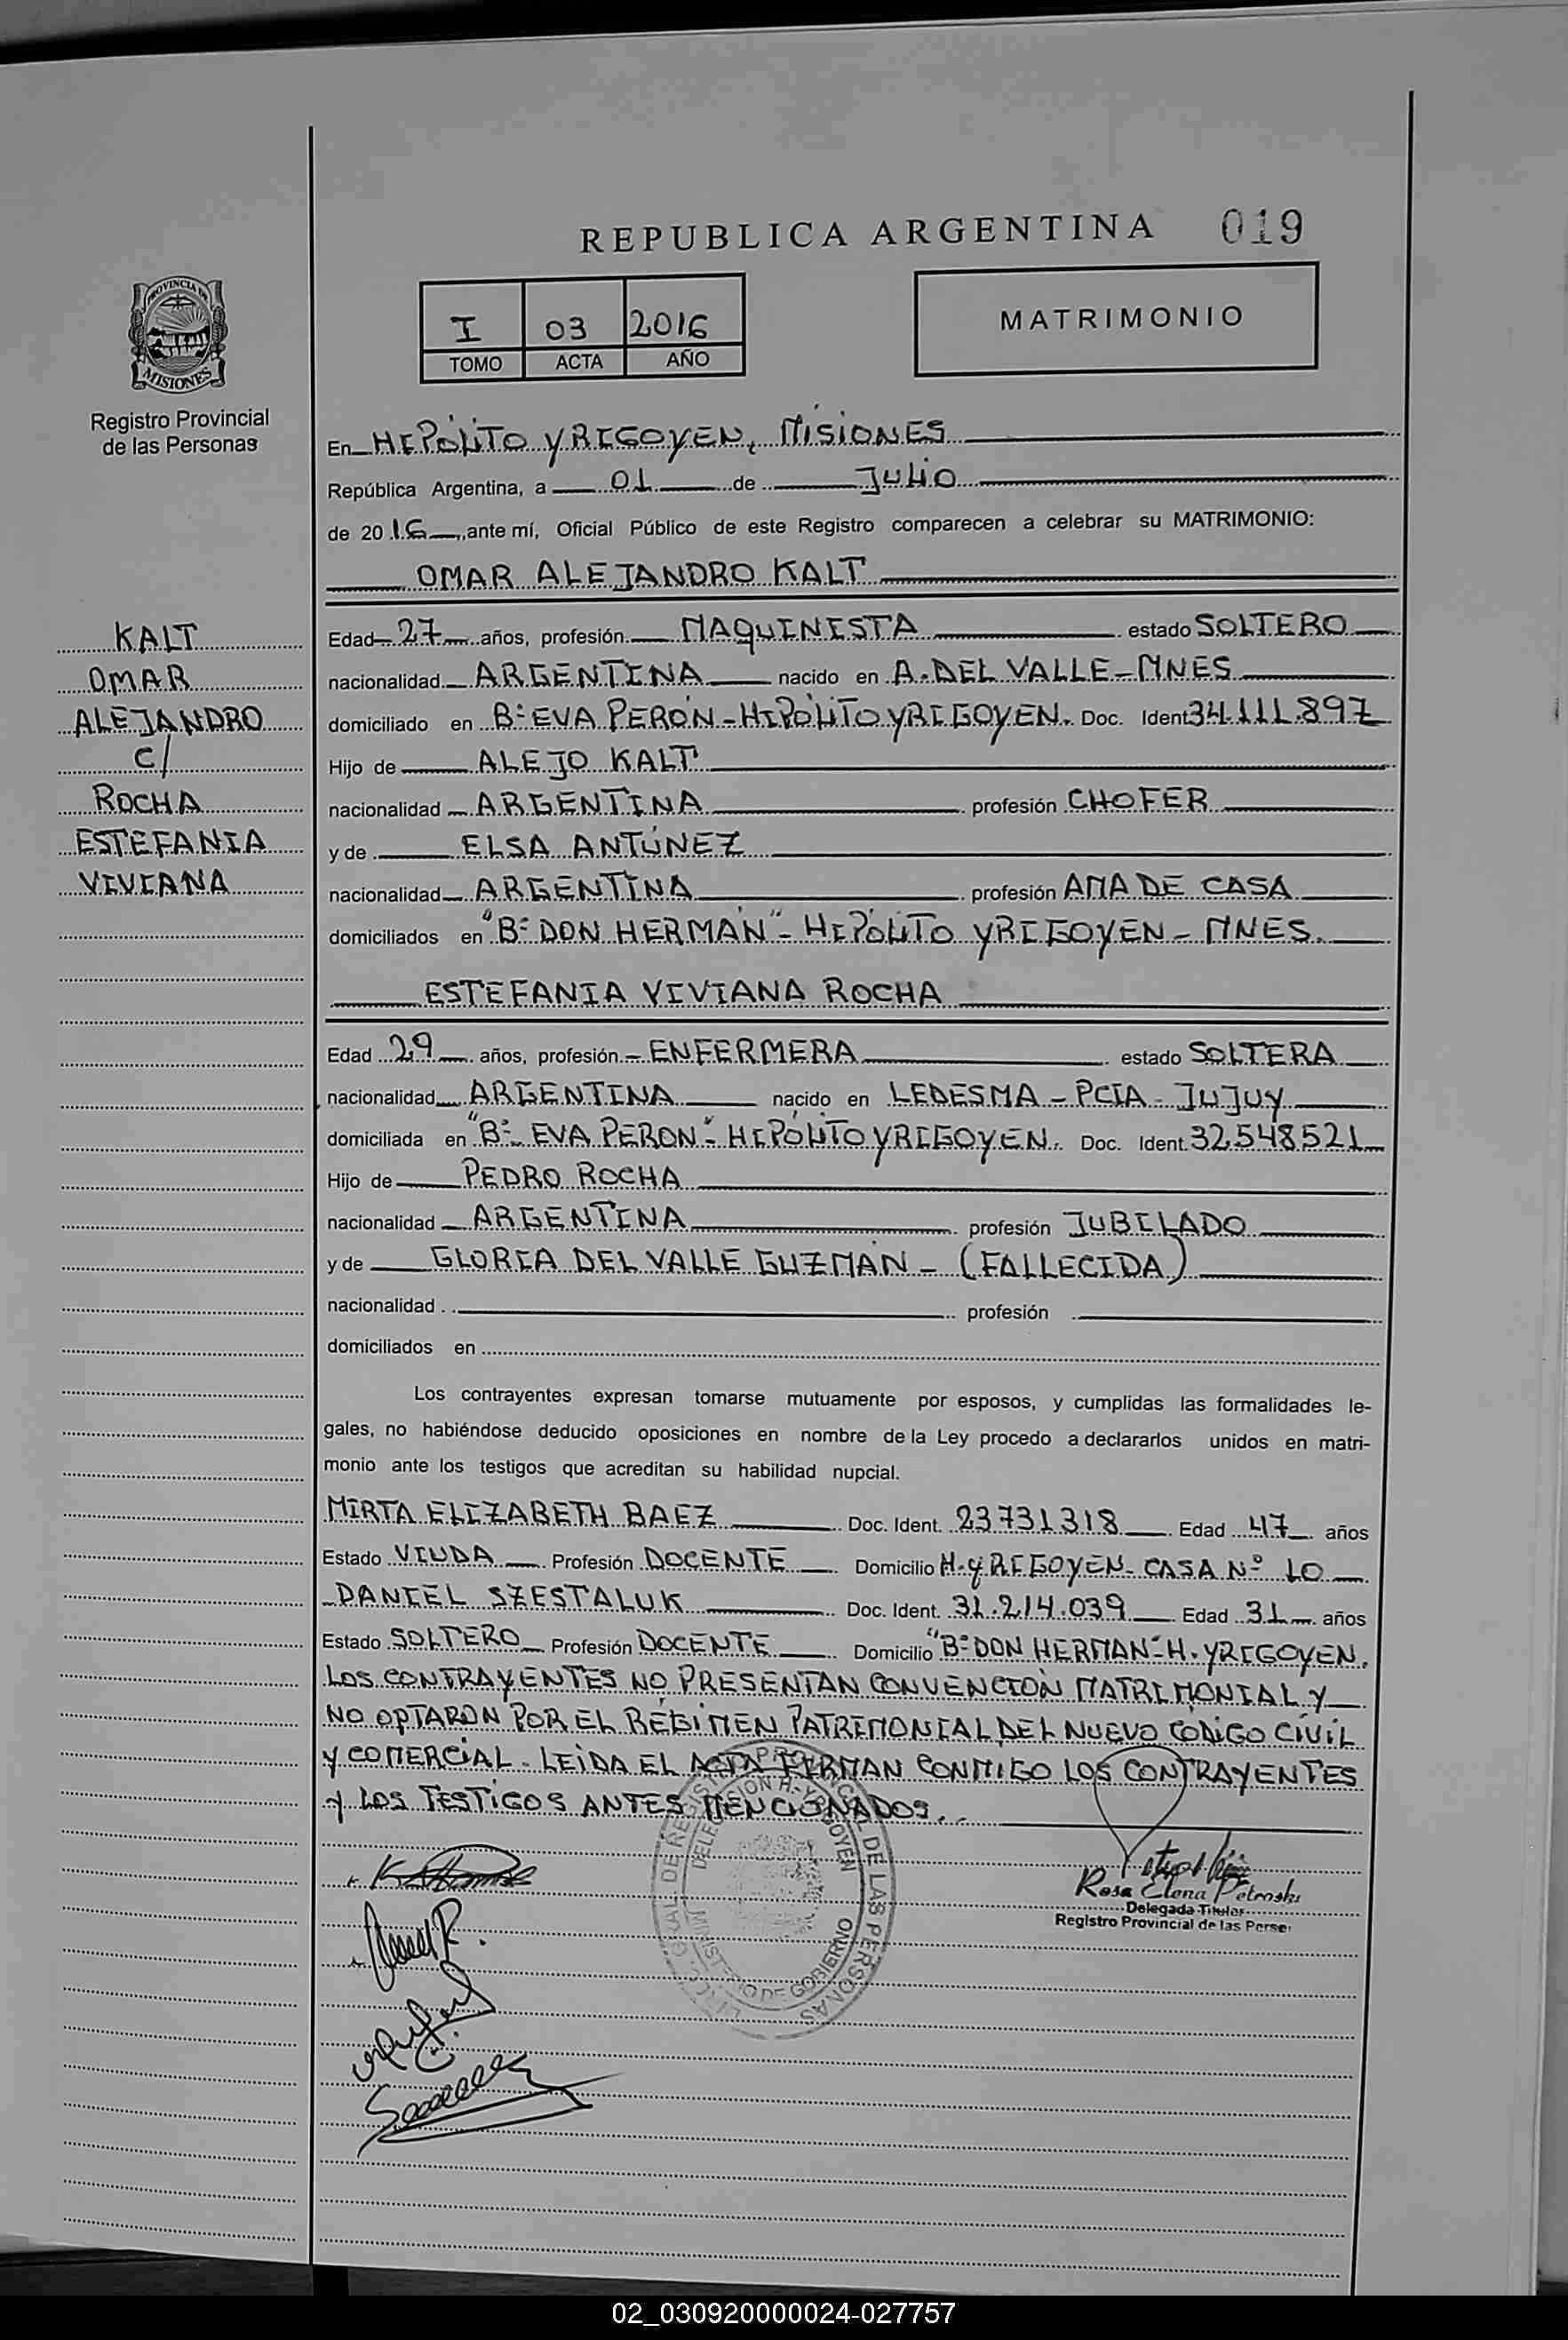 REPUBLICA ARGENTINA 019
PROVINCIA DE
MISIONES
Registro Provincial
de las Personas
I 03 2016
TOMO ACTA AÑO
MATRIMONIO
En HIPÓLITO YRIGOYEN, MISIONES
República Argentina, a 01 de JULIO
de 2016, ante mí, Oficial Público de este Registro comparecen a celebrar su MATRIMONIO:
OMAR ALEJANDRO KALT
KALT
OMAR
ALEJANDRO
C/
ROCHA
ESTEFANIA
VIVIANA
Edad 27 años, profesión MAQUINISTA estado SOLTERO
nacionalidad ARGENTINA nacido en A. DEL VALLE - MNES
domiciliado en Bº EVA PERÓN - HIPÓLITO YRIGOYEN. Doc. Ident 34.111.897
Hijo de ALEJO KALT
nacionalidad ARGENTINA profesión CHOFER
y de ELSA ANTÚNEZ
nacionalidad ARGENTINA profesión AMA DE CASA
domiciliados en "Bº DON HERMÁN" - HIPÓLITO YRIGOYEN - MNES.
ESTEFANIA VIVIANA ROCHA
Edad 29 años, profesión ENFERMERA estado SOLTERA
nacionalidad ARGENTINA nacido en LEDESMA - PCIA - JUJUY
domiciliada en "Bº EVA PERON" - HIPÓLITO YRIGOYEN. Doc. Ident. 32.548.521
Hijo de PEDRO ROCHA
nacionalidad ARGENTINA profesión JUBILADO
y de GLORIA DEL VALLE GUZMÁN - (FALLECIDA)
nacionalidad profesión
domiciliados en
Los contrayentes expresan tomarse mutuamente por esposos, y cumplidas las formalidades le-
gales, no habiéndose deducido oposiciones en nombre de la Ley procedo a declararlos unidos en matri-
monio ante los testigos que acreditan su habilidad nupcial.
MIRTA ELIZABETH BAEZ Doc. Ident. 23731318 Edad 47 años
Estado VIUDA Profesión DOCENTE Domicilio H. YRIGOYEN - CASA Nº 10
DANIEL SZESTALUK Doc. Ident. 31.214.039 Edad 31 años
Estado SOLTERO Profesión DOCENTE Domicilio "Bº DON HERMAN" - H. YRIGOYEN.
LOS CONTRAYENTES NO PRESENTAN CONVENCIÓN MATRIMONIAL Y
NO OPTARON POR EL RÉGIMEN PATRIMONIAL DEL NUEVO CÓDIGO CIVIL
Y COMERCIAL. LEIDA EL ACTA FIRMAN CONMIGO LOS CONTRAYENTES
Y LOS TESTIGOS ANTES MENCIONADOS.
DELEGACION H. YRIGOYEN
MINISTERIO DE GOBIERNO
DE LAS PERSONAS
Rosa Elena Petroski
Delegada Titular
Registro Provincial de las Perso
02_030920000024-027757